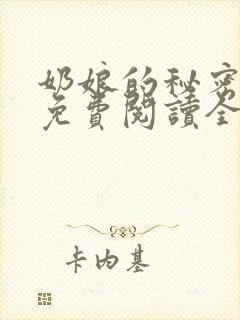 奶娘的秘密
免費閱讀全
卡内基